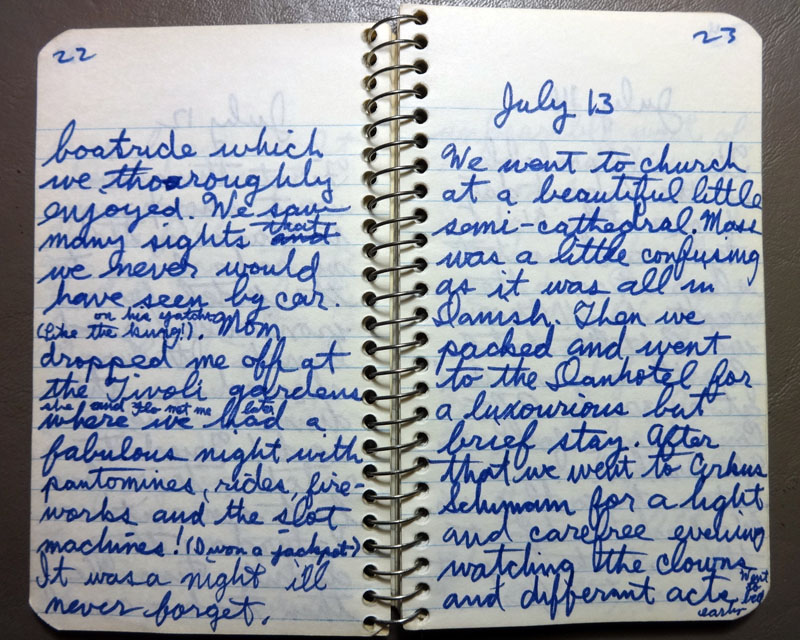 22
boatride which
we thoaroughly
enjoyed. We saw
many sights and that
we never would
have seen by car.
(like the king!). on his yatch Mom
dropped me off at
the Tivoli gardens
she and Flo met me later
where we had a
fabulous night with
pantomines, rides, fire-
works and the slot
machines! (I won a jackpot)
It was a night ill
never forget.
23
July 13
We went to church
at a beautiful little
semi-cathedral. Mass
was a little confusing
as it was all in
Danish. Then we
packed and went
to the Danhotel for
a luxourious but
brief stay. After
that we went to Cirkus
Schumann for a light
and carefree evening
watching the clowns
and differant acts. Went to bed
early